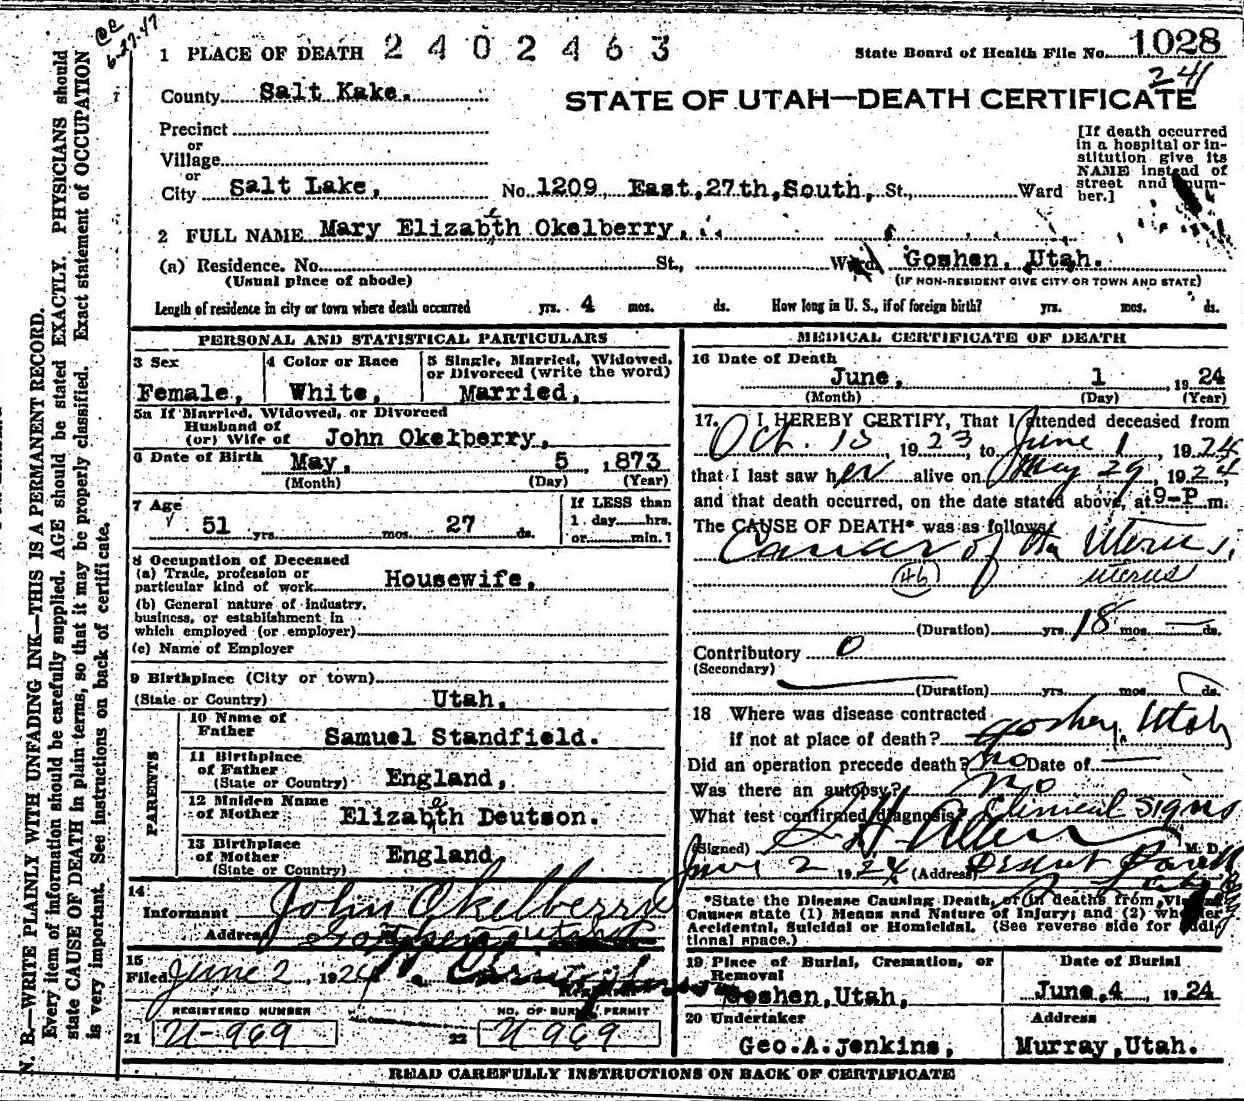 1 PLACE OF DEATH 2402463
State Board of Health File No. 1028
241
6-27-47
County Salt Kake.
STATE OF UTAH—DEATH CERTIFICATE
Precinct
or
Village
or
City Salt Lake, No. 1209 East, 27th, South, St., Ward
[If death occurred in a hospital or in-
stitution give its
NAME instead of
street and num-
ber.]
2 FULL NAME Mary Elizabeth Okelberry.
(a) Residence. No. St., Ward, Goshen, Utah.
(Usual place of abode)
(IF NON-RESIDENT GIVE CITY OR TOWN AND STATE)
Length of residence in city or town where death occurred yrs. 4 mos. ds. How long in U. S., if of foreign birth? yrs. mos. ds.
PERSONAL AND STATISTICAL PARTICULARS
3 Sex
Female,
4 Color or Race
White,
5 Single, Married, Widowed,
or Divorced (write the word)
Married,
5a If Married, Widowed, or Divorced
Husband of
(or) Wife of John Okelberry,
6 Date of Birth May, 5 ,873
(Month) (Day) (Year)
7 Age
51 yrs. mos. 27 ds.
If LESS than
1 day hrs.
or min. ?
8 Occupation of Deceased
(a) Trade, profession or
particular kind of work Housewife,
(b) General nature of industry,
business, or establishment in
which employed (or employer)
(c) Name of Employer
9 Birthplace (City or town)
(State or Country) Utah,
PARENTS
10 Name of
Father Samuel Standfield.
11 Birthplace
of Father
(State or Country) England,
12 Maiden Name
of Mother Elizabeth Deutson.
13 Birthplace
of Mother
(State or Country) England,
14
Informant John Okelberry
Address
15
Filed June 2, 1924
REGISTERED NUMBER
21 U-969
NO. OF BURIAL PERMIT
22 U 969
MEDICAL CERTIFICATE OF DEATH
16 Date of Death
June, 1 , 1924
(Month) (Day) (Year)
17. I HEREBY CERTIFY, That I attended deceased from
Oct. 15, 1923 to June 1, 1924
that I last saw her alive on May 29, 1924,
and that death occurred, on the date stated above, at 9-P m.
The CAUSE OF DEATH* was as follows:
Cancer of the Uterus,
46 uterus
(Duration) yrs. 18 mos. — ds.
Contributory 0
(Secondary)
(Duration) yrs. mos. ds.
18 Where was disease contracted
if not at place of death? Goshen, Utah
Did an operation precede death? no Date of —
Was there an autopsy? no
What test confirmed diagnosis? Clinical Signs
(Signed) Allen M. D.
June 2 1924 (Address) Deseret Bank
*State the Disease Causing Death, or in deaths from Violent
Causes state (1) Means and Nature of Injury; and (2) whether
Accidental, Suicidal or Homicidal. (See reverse side for addi-
tional space.)
19 Place of Burial, Cremation, or
Removal
Goshen, Utah,
Date of Burial
June, 4 , 1924
20 Undertaker
Geo. A. Jenkins,
Address
Murray, Utah.
READ CAREFULLY INSTRUCTIONS ON BACK OF CERTIFICATE
N. B.—WRITE PLAINLY WITH UNFADING INK—THIS IS A PERMANENT RECORD.
Every item of information should be carefully supplied. AGE should be stated EXACTLY. PHYSICIANS should
state CAUSE OF DEATH in plain terms, so that it may be properly classified. Exact statement of OCCUPATION
is very important. See instructions on back of certificate.